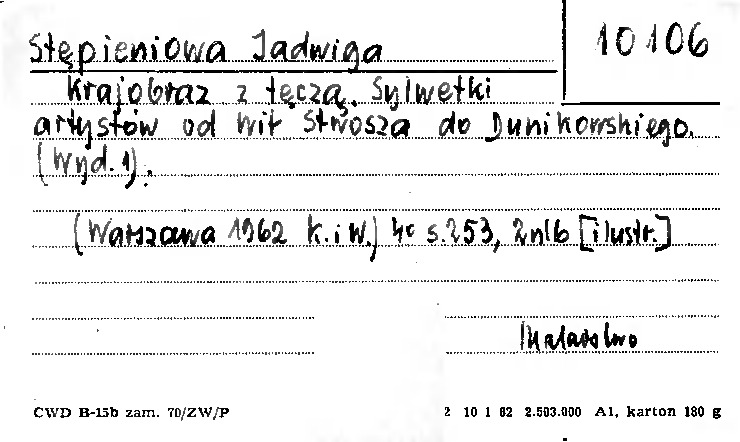 Stępieniowa Jadwiga
10106
Krajobraz z tęczą. Sylwetki
artystów od Wit Stwosza do Dunikowskiego.
(Wyd. 1).
(Warszawa 1962 K. i W.) 4° s. 253, 2 nlb [ilustr.]
Malarstwo
CWD B-15b zam. 70/ZW/P
2 10 1 62 2.503.000 A1, karton 180 g